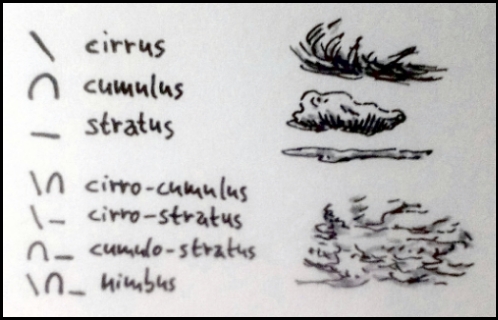 \ cirrus
∩ cumulus
— stratus
\∩ cirro-cumulus
\— cirro-stratus
∩— cumulo-stratus
\∩— nimbus